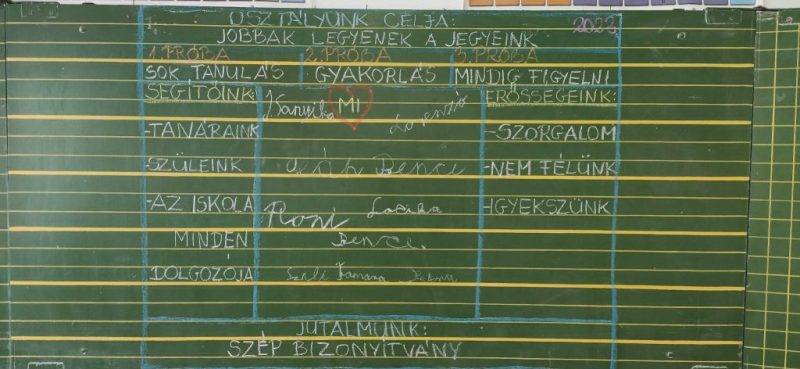 OSZTÁLYUNK CÉLJA:
2023
JOBBAK LEGYENEK A JEGYEINK
1. PRÓBA 2. PRÓBA 3. PRÓBA
SOK TANULÁS GYAKORLÁS MINDIG FIGYELNI
SEGÍTŐINK:
-TANÁRAINK
SZÜLEINK
-AZ ISKOLA
MINDEN
DOLGOZÓJA
MI
Bence
Roni
Bence.
ERŐSSÉGEINK:
-SZORGALOM
-NEM FÉLÜNK
-IGYEKSZÜNK
JUTALMUNK:
SZÉP BIZONYÍTVÁNY